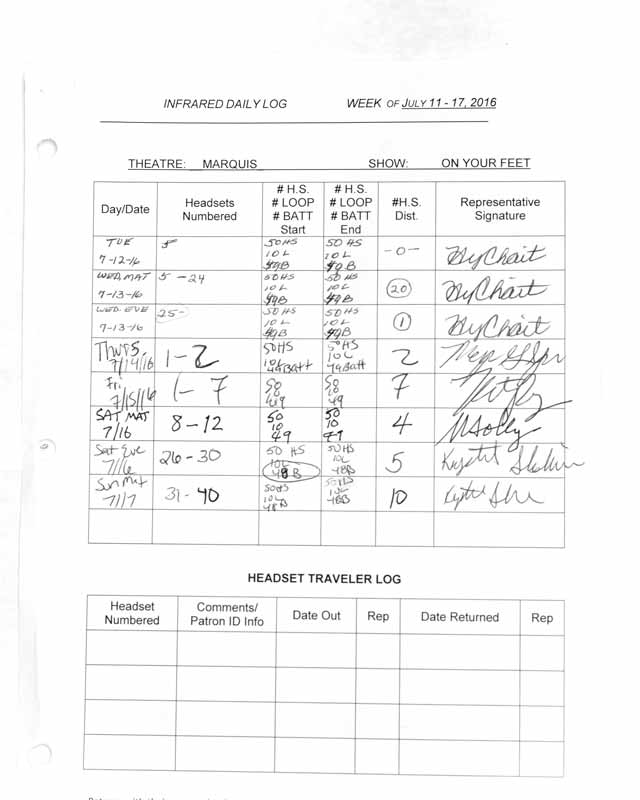 INFRARED DAILY LOG WEEK OF JULY 11 - 17, 2016
THEATRE: MARQUIS SHOW: ON YOUR FEET
Day/Date Headsets Numbered # H.S. # LOOP # BATT Start # H.S. # LOOP # BATT End #H.S. Dist. Representative Signature
TUE 7-12-16 50HS 10L 49B 50HS 10L 49B -0- HyChait
WED. MAT 7-13-16 5-24 50HS 10L 49B 50HS 10L 49B 20 HyChait
WED. EVE 7-13-16 25- 50HS 10L 49B 50HS 10L 49B 1 HyChait
Thurs. 7/14/16 1-2 50HS 10L 49Batt 50HS 10L 49Batt 2
Fri 7/15/16 1-7 50 10 49 50 10 49 7
SAT MAT 7/16 8-12 50 10 49 50 10 4
Sat Eve 7/16 26-30 50 HS 10L 48B 50HS 10L 48B 5
Sun Mat 7/17 31-40 50HS 10L 48B 50HS 10L 48B 10
HEADSET TRAVELER LOG
Headset Numbered Comments/ Patron ID Info Date Out Rep Date Returned Rep